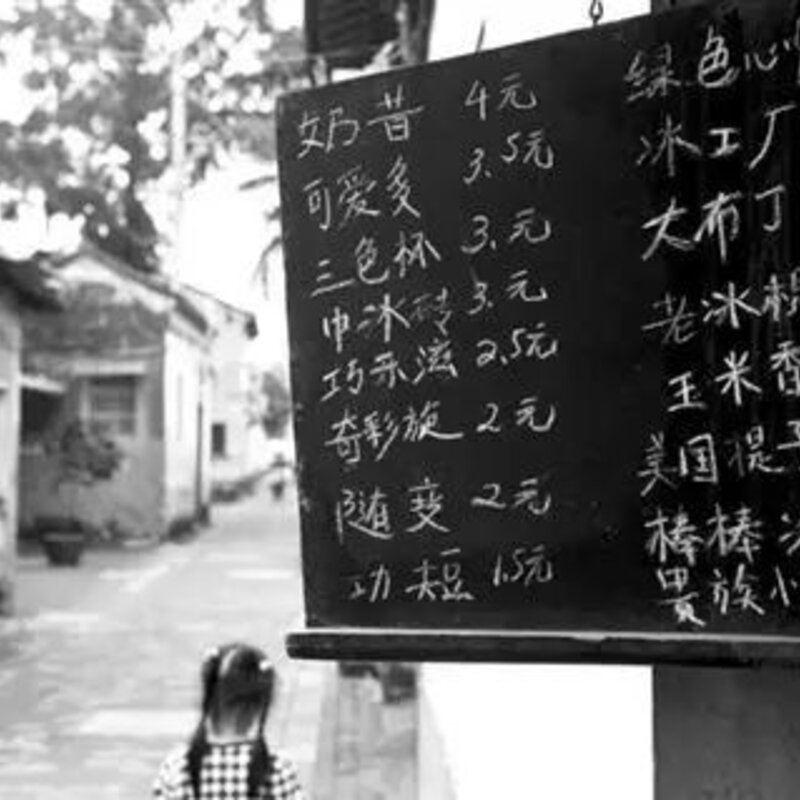 奶昔 4元
可爱多 3.5元
三色杯 3.元
巾冰砖 3.元
巧乐滋 2.5元
奇彩旋 2元
随变 2元
功夫豆 1.5元
绿色心
冰工厂
大布丁
老冰棍
玉米香
美国提子
棒棒冰
贵族小